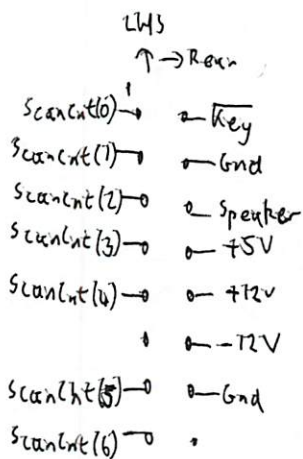 LHS
↑ → Rear
1
Scancnt(0) K̅e̅y̅
Scancnt(1) Gnd
Scancnt(2) Speaker
Scancnt(3) +5V
Scancnt(4) +12V
-12V
Scancnt(5) Gnd
Scancnt(6)